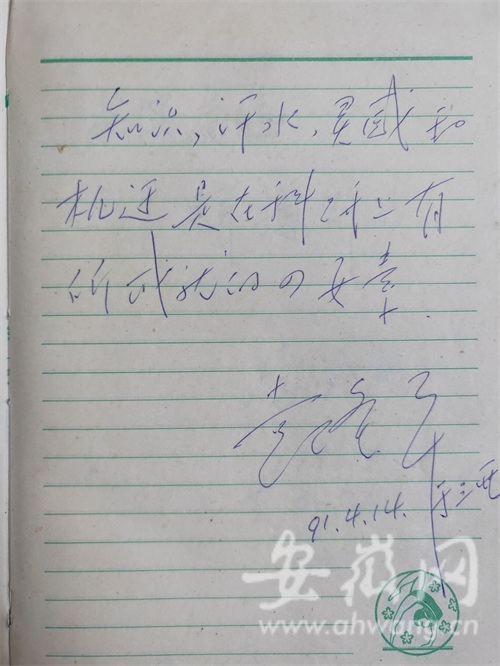 知识，汗水，灵感和
机遇是在科研上有
所成就的四要素.
袁隆平
91.4.14. 于三亚
安徽网
www.ahwang.cn